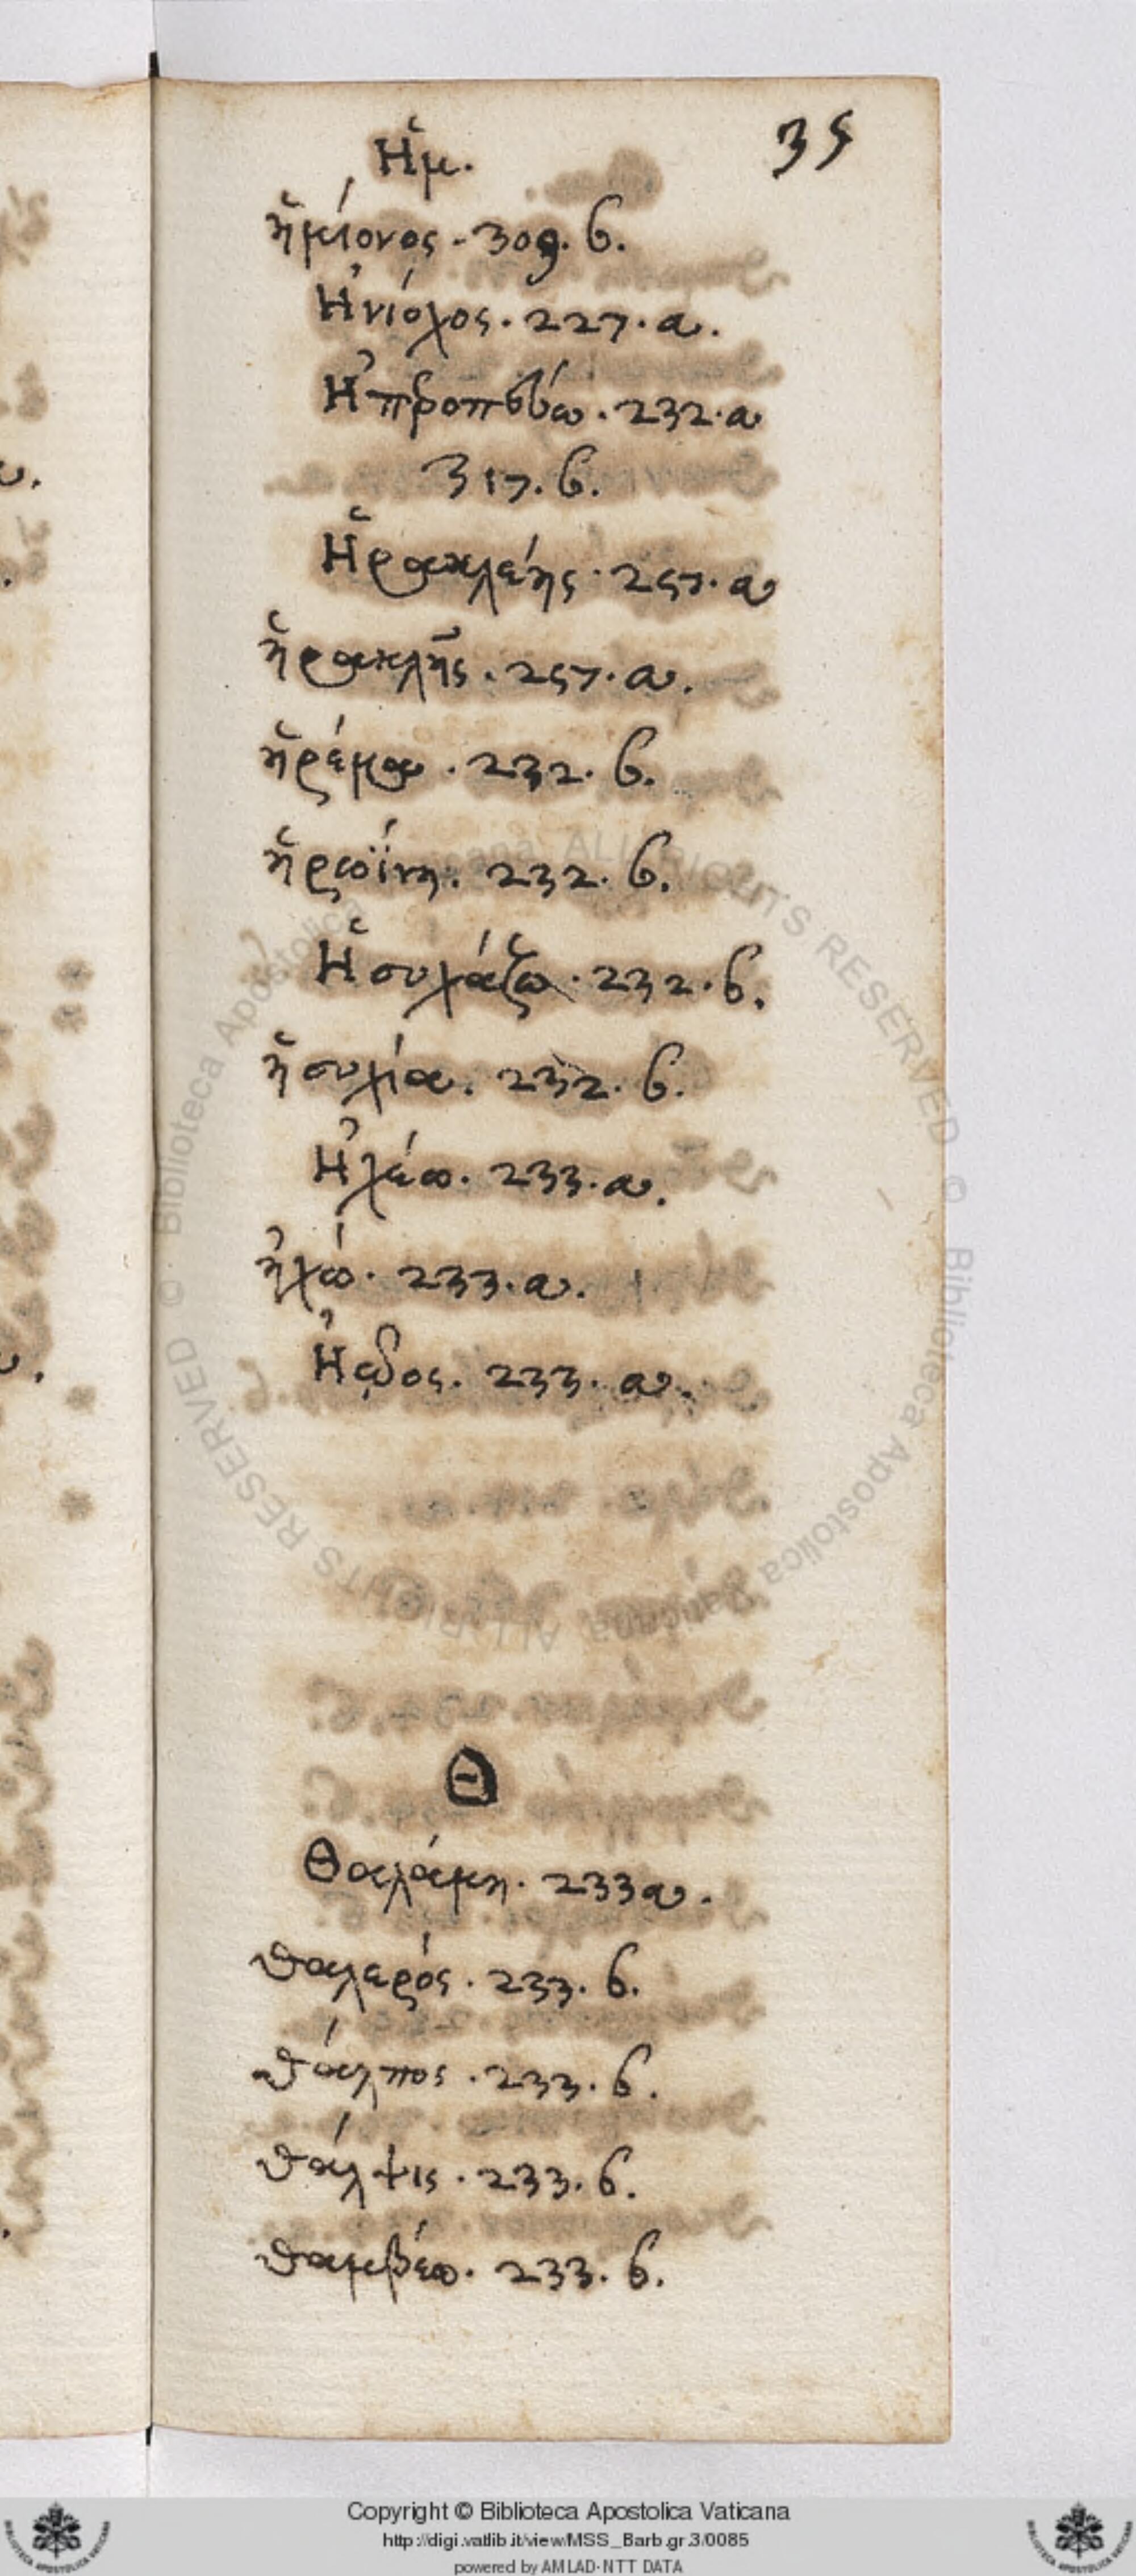 35
Ἡμ.
ἡμίονος. 309. б.
Ἡνίοχος. 227. α.
232. α
317. б.
Ἡρακλέης. 257. α
ἡρακλῆς. 257. α.
ἡρέμα. 232. б.
ἡρωΐνη. 232. б.
Ἡσυχάζω. 232. б.
ἡσυχία. 232. б.
Ἠχέω. 233. α.
ἠχώ. 233. α.
233. α.
Θ
Θαλάμη. 233α.
θαλερός. 233. б.
θάλπος. 233. б.
θάλψις. 233. б.
θαμβέω. 233. б.
Copyright © Biblioteca Apostolica Vaticana
http://digi.vatlib.it/view/MSS_Barb.gr.3/0085
powered by AMLAD-NTT DATA